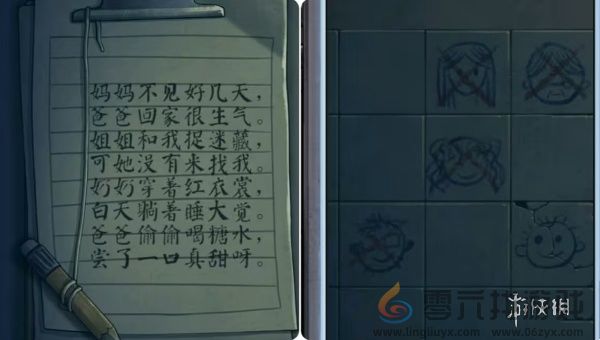 妈妈不见好几天，
爸爸回家很生气。
姐姐和我捉迷藏，
可她没有来找我。
奶奶穿着红衣裳，
白天躺着睡大觉。
爸爸偷偷喝糖水，
尝了一口真甜呀。
零六找游戏
www.lingliuyx.com
游侠网
www.06zyx.com